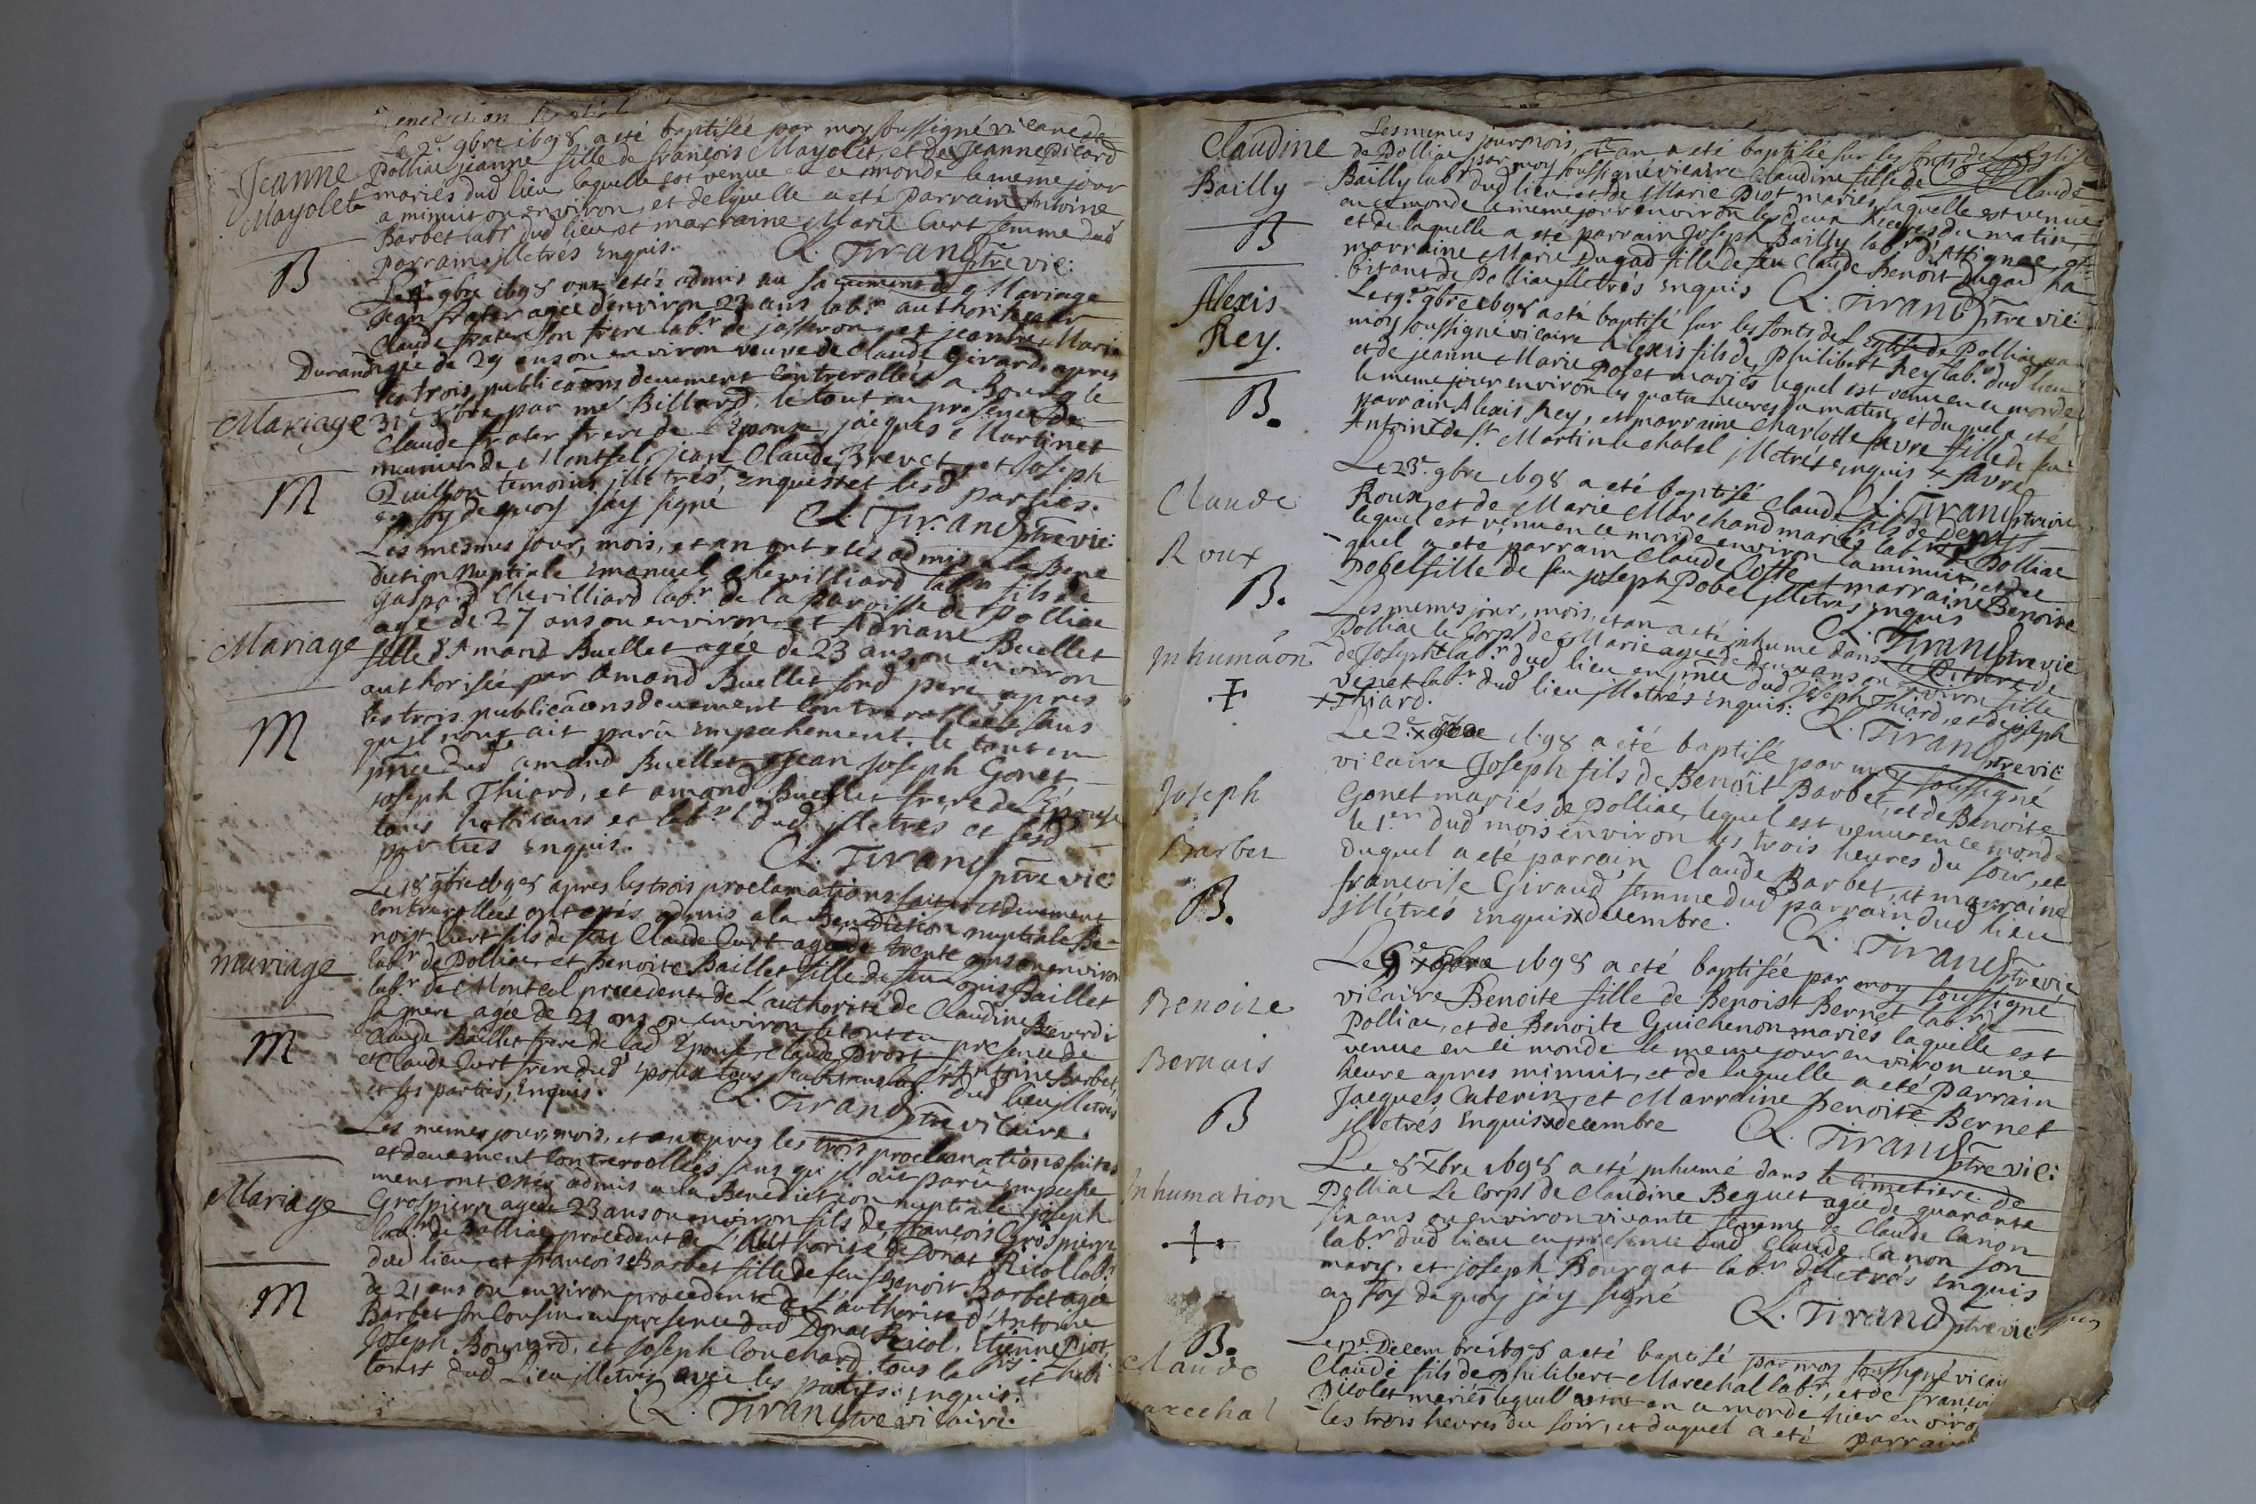 Benediction
Le 2e 9bre 1698 a eté baptisée par moy soussigné vicaire de
Jeanne
Polliac jeanne fille de françois Mayolet, et de Jeanne Picard
Mayolet
mariés dud lieu laquelle est venue en ce monde le meme jour
a minuit ou environ, et delaquelle a eté parrain Antoine
Barbet labr dud lieu et marraine Marie Curt femme dud
B
parrain jlletrés enquis.
C. Tirand ptre vic:
Le 9bre 1698 ont étés admis au sacrement de Mariage
Jean frater agée d'environ 23 ans labr authorisé par
Claude frater son frere labr de jasseron, et jeanne Marie
Durand agée de 29 ans ou environ veuve de Claude Girard, apres
les trois publicãons deuement controrollées a Bourg le
Mariage
31e 8bre par me Billard, le tout en presence de
Claude frater frere de l'Epoux, jacques Martinet
munier de Montfal, Jean Claude Brevet, et Joseph
M
Duillon temoins jlletrés enquis et lesd parties.
en foy de quoy jay signé
C. Tirand ptre vic:
Les mesmes jour, mois, et an ont etés admis a la Bene
diction Nuptiale Emanuel Chevilliard labr fils de
Gaspard Chevilliard labr de la paroisse de Polliac
agé de 27 ans ou environ et Adriane Buellet
Mariage
fille d'Amand Buellet agée de 23 ans ou environ
authorisée par Amand Buellet sond pere apres
les trois publicãons deuement controrollées sans
M
qu'jl nous ait parû empechement. le tout en
pnce dud amand Buellet, Jean Joseph Gonet
Joseph Thiard, et amand Buellet frere de l'épouse
tous habitans et labrs dud jlletrés et lesd
parties enquis.
C. Tirand ptre vic:
Le 18 9bre 1698 apres les trois proclamations faites et deuement
controrollées ont etés admis a la Benediction nuptiale Be-
noist Curt fils de feu Claude Curt agé de trente ans ou environ
mariage
labr de Polliac, et Benoite Baillet fille de feu Baillet
labr de Montcel procedente de l'authorité de Claudine Beverdi
sa mere agée de 21 ans ou environ, le tout en presence de
M
Claude Baillet frere de lad Epouse, Claude Prost, Antoine Barbet,
et Claude Curt frere dud Epoux tous habitans dud lieu jlletrés
et les parties, enquis.
C. Tirand ptre vicaire.
Les memes jour, mois, et an apres les trois proclamations faites
et deuement controrollées sans qu'jl ait parû empeche
ment ont étés admis a la Benediction nuptiale joseph
Mariage
Grospierre agé de 23 ans ou environ fils de françois Grospierre
labr de Polliac procedent de l'Authorité de Donat Ricol labr
dud lieu, et françoise Barbet fille de feu Benoit Barbet agée
M
de 21 ans ou environ procedente de l'authorité d'Antoine
Barbet son Cousin en presence dud Donat Ricol, Etienne Piot
Joseph Bouvard, et Joseph Couchard tous labrs et habi
tants dud Lieu jlletrés avec les parties enquis.
C. Tirand ptre vicaire.
Les memes jour, mois, et an a eté baptisée sur les fonts de l'eglise
Claudine
de Polliac par moy soussigné vicaire Claudine fille de Claude
Bailly
Bailly labr dud lieu et de Marie Piot mariés laquelle est venue
au monde le meme jour environ les deux heures du matin,
B
et de laquelle a eté parrain Joseph Bailly labr d'Attignac, et
marraine Marie Dugad fille de feu Claude Benoit Dugad ha-
bitant de Polliac jlletrés enquis
C. Tirand ptre vic:
Alexis
Le 19e 9bre 1698 a eté baptisé sur les fonts de L'Eglise de Polliac par
Rey.
moy soussigné vicaire Alexis fils de Philibert Rey labr dud lieu
et de jeanne Marie Poset mariés lequel est venu en ce monde
B.
le meme jour environ les quatre heures du matin, et duquel a eté
parrain Alexis Rey, et marraine Charlotte favre fille de feu
Antoine de St Martin le chatel jlletrés enquis x favre
C. Tirand ptre vic
Le 23e 9bre 1698 a eté baptisé Claude fils de Denys
Claude
Roux, et de Marie Marchand mariés labr de Polliac
Roux
lequel est venu en ce monde environ la minuit, et du
quel a eté parrain Claude Coste et marraine Benoise
B.
Pobel fille de feu joseph Pobel jlletrés enquis
C. Tirand ptre vic
Les memes jour, mois, et an a eté jnhumé dans le Cimetiere de
Jnhumãon
Polliac le Corps de Marie agée de deux ans ou environ fille
+
de Joseph x labr dud lieu en pnce dud Joseph Thiard, et de joseph
Venet labr dud lieu jlletrés enquis.
x Thiard.
C. Tirand ptre vic:
Le 2e x 1698 a eté baptisé par moy soussigné
Joseph
vicaire Joseph fils de Benoît Barbet, et de Benoite
Gonet mariés de Polliac, lequel est venu en ce monde
Barbet
le 1er dud mois environ les trois heures du soir, et
duquel a eté parrain Claude Barbet, et marraine
B.
françoise Giraud femme dud parrain dud lieu
jlletrés enquis x decembre.
C. Tirand ptre vic
Le 9e x 1698 a eté baptisée par moy soussigné
Benoite
vicaire Benoite fille de Benoist Bernet labr de
Polliac, et de Benoite Guichenon mariés laquelle est
Bernais
venue en ce monde le meme jour environ une
heure apres minuit, et de laquelle a eté Parrain
B
Jacques Caterin, et Marraine Benoite Bernet
jlletrés enquis x decembre
C. Tirand ptre vic:
Le 8 xbre 1698 a eté jnhumé dans le Cimetiere de
Jnhumation
Polliac Le Corps de Claudine Beguet agée de quarante
six ans ou environ vivante femme de Claude Canon
+
labr dud lieu en presence dud Claude Canon son
mary, et joseph Bourgat labr jlletrés enquis
en foy de quoy j'ay signé
C. Tirand ptre vic:
B.
Le 12e Decembre 1698 a eté baptisé par moy soussigné vicai
Claude
Claude fils de philibert Marechal labr, et de françoi
Marechal
Picolet mariés lequel en ce monde hier environ
les trois heures du soir, et duquel a eté parrain